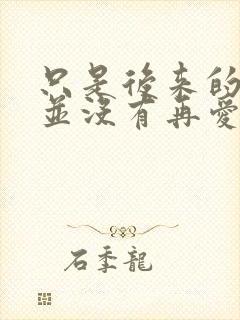 只是後來的
並沒有再愛
石季龍